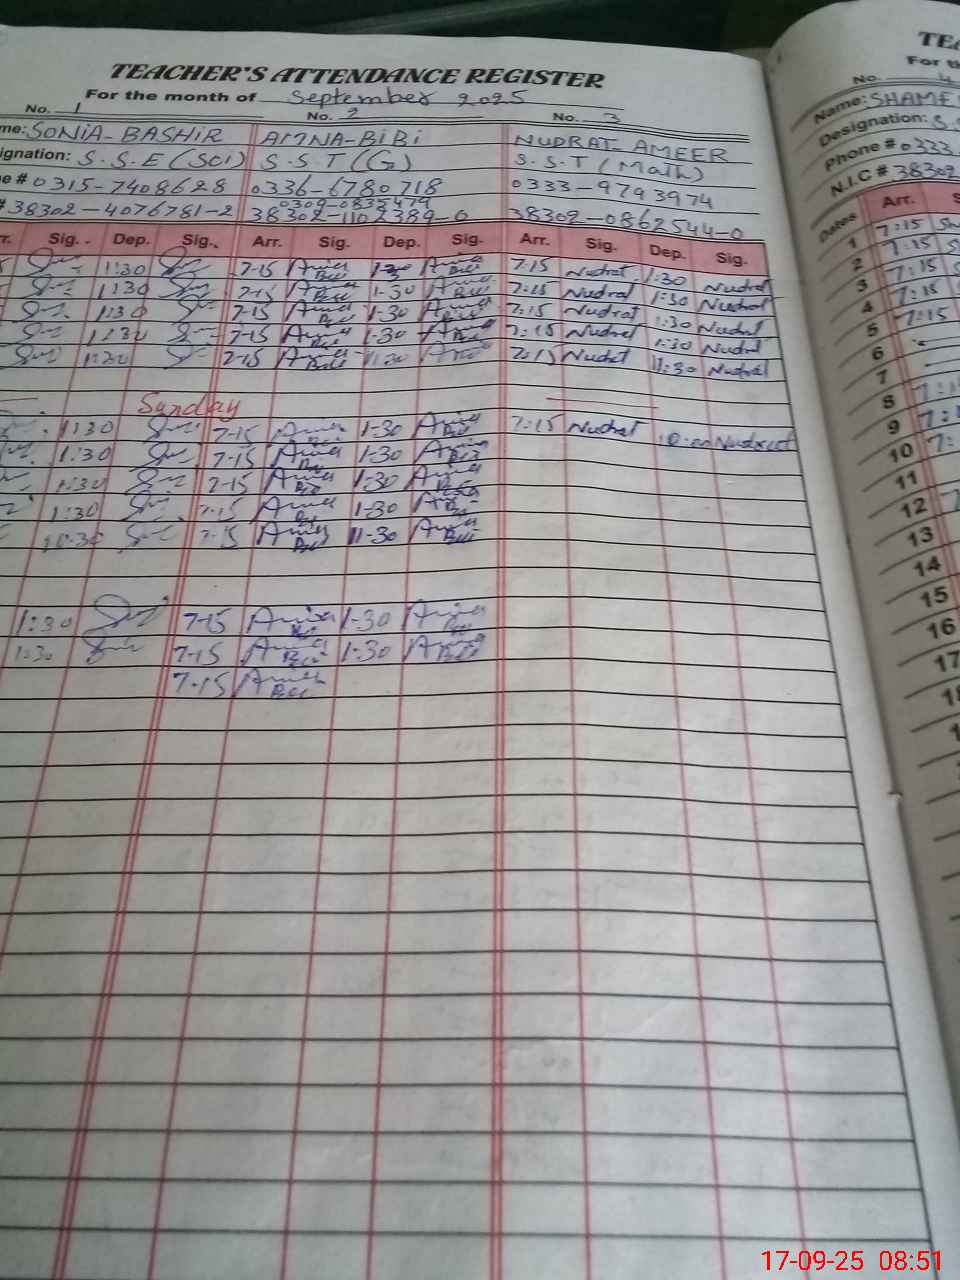 TEACHER'S ATTENDANCE REGISTER
For the month of September 2025
No. 1 No. 2 No. 3
me: SONIA-BASHIR AMNA-BIBI NUDRAT AMEER
ignation: S.S.E (SCI) S.S.T (G) S.S.T (Math)
e # 0315-7408628 0336-6780718 0333-9793974
0309-0835479
# 38302-4076781-2 38302-1102389-0 38302-0862544-0
rr. Sig. Dep. Sig. Arr. Sig. Dep. Sig. Arr. Sig. Dep. Sig.
1:30 7-15 Amna Bibi 1-30 Amna Bibi 7:15 Nudrat 1:30 Nudrat
1:30 7-15 Amna Bibi 1-30 Amna Bibi 7:15 Nudrat 1:30 Nudrat
1:30 7-15 Amna Bibi 1-30 Amna Bibi 7:15 Nudrat 1:30 Nudrat
1:30 7-15 Amna Bibi 1-30 Amna Bibi 7:15 Nudrat 1:30 Nudrat
1:30 7-15 Amna Bibi 1:30 Amna 7:15 Nudrat 1:30 Nudrat
Sunday
1:30 7-15 Amna Bibi 1-30 Amna Bibi 7:15 Nudrat 10:00 Nudrat
1:30 7-15 Amna Bibi 1-30 Amna Bibi
1:30 7-15 Amna Bibi 1-30 Amna Bibi
1:30 7-15 Amna Bibi 1-30 Amna Bibi
7-15 Amna Bibi 11-30 Amna Bibi
1:30 7-15 Amna Bibi 1-30 Amna Bibi
1:30 7-15 Amna Bibi 1-30 Amna Bibi
7-15 Amna Bibi
TEA
For th
No. 4
Name: SHAME
Designation: S.
Phone # 0333
N.I.C # 38302
Dates Arr.
1 7:15
2 7:15
3 7:15
4 7:15
5 7:15
6
7
8 7:1
9 7:
10 7:
11
12
13
14
15
16
17
17-09-25 08:51